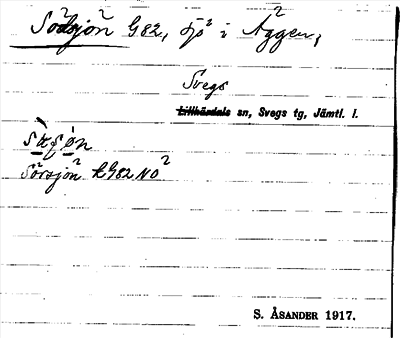 Sörsjön G82, sjö i Äggen,
Svegs
Lillhärdals sn, Svegs tg, Jämtl. l.
Sörsjön kG82 NO
S. ÅSANDER 1917.